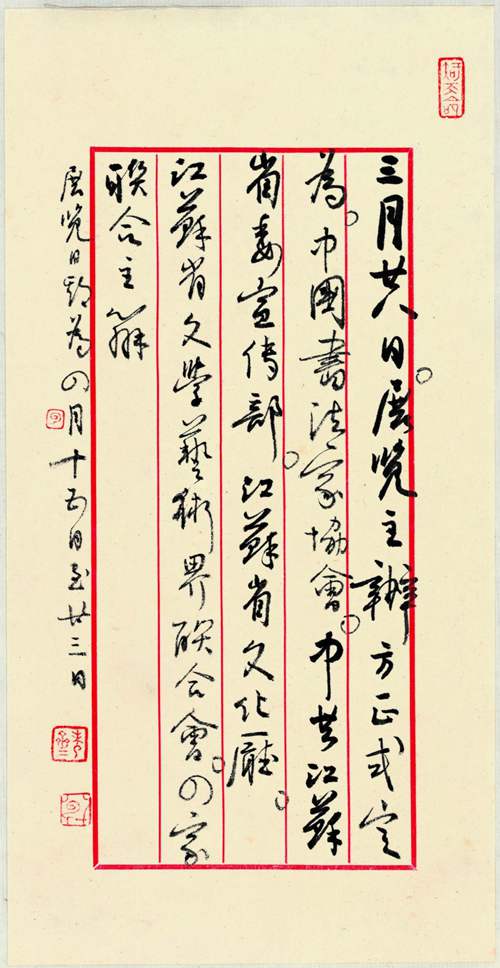 三月廿八日。展览主辦方正式定
為。中國書法家協會。中共江蘇
省委宣传部。江蘇省文化廳。
江蘇省文學藝術界联合會。四家
联合主辦
展览日期為四月十五日至廿三日